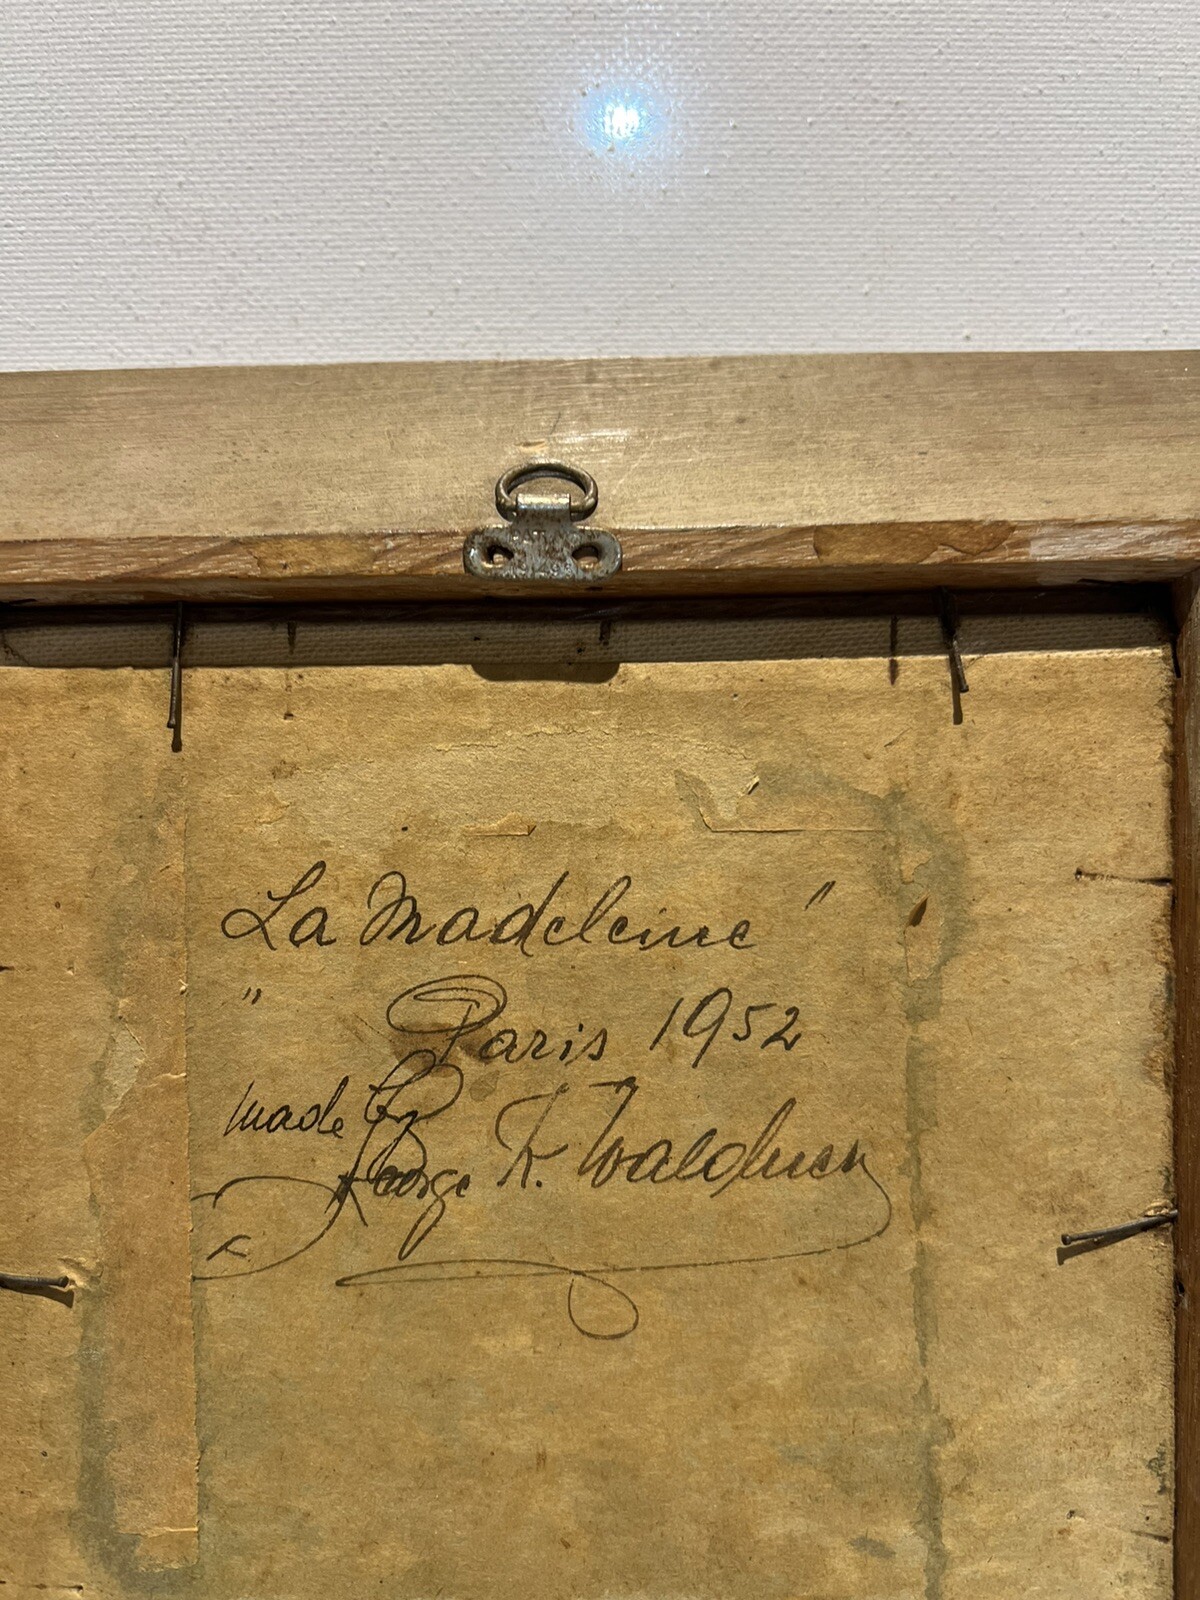 La Madeleine "
" Paris 1952
made by
George K.